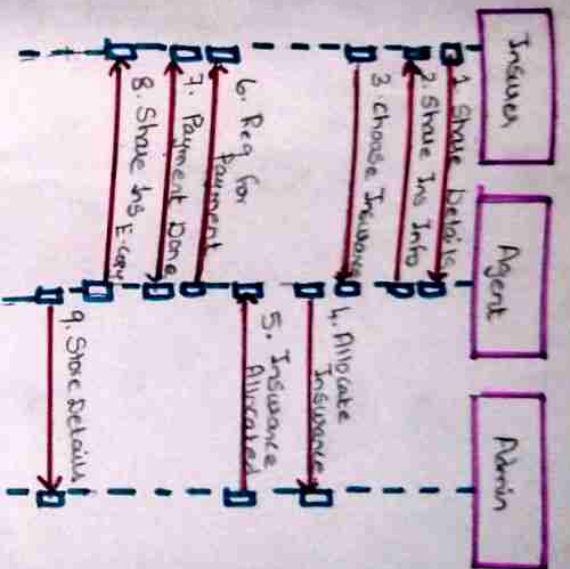 Insurer
Agent
Admin
1. Share Details
2. Share Ins Info
3. choose Insurance
4. Allocate
Insurance
5. Insurance
Allocated
6. Req for
Payment
7. Payment Done
8. Share Ins E-copy
9. Store Details